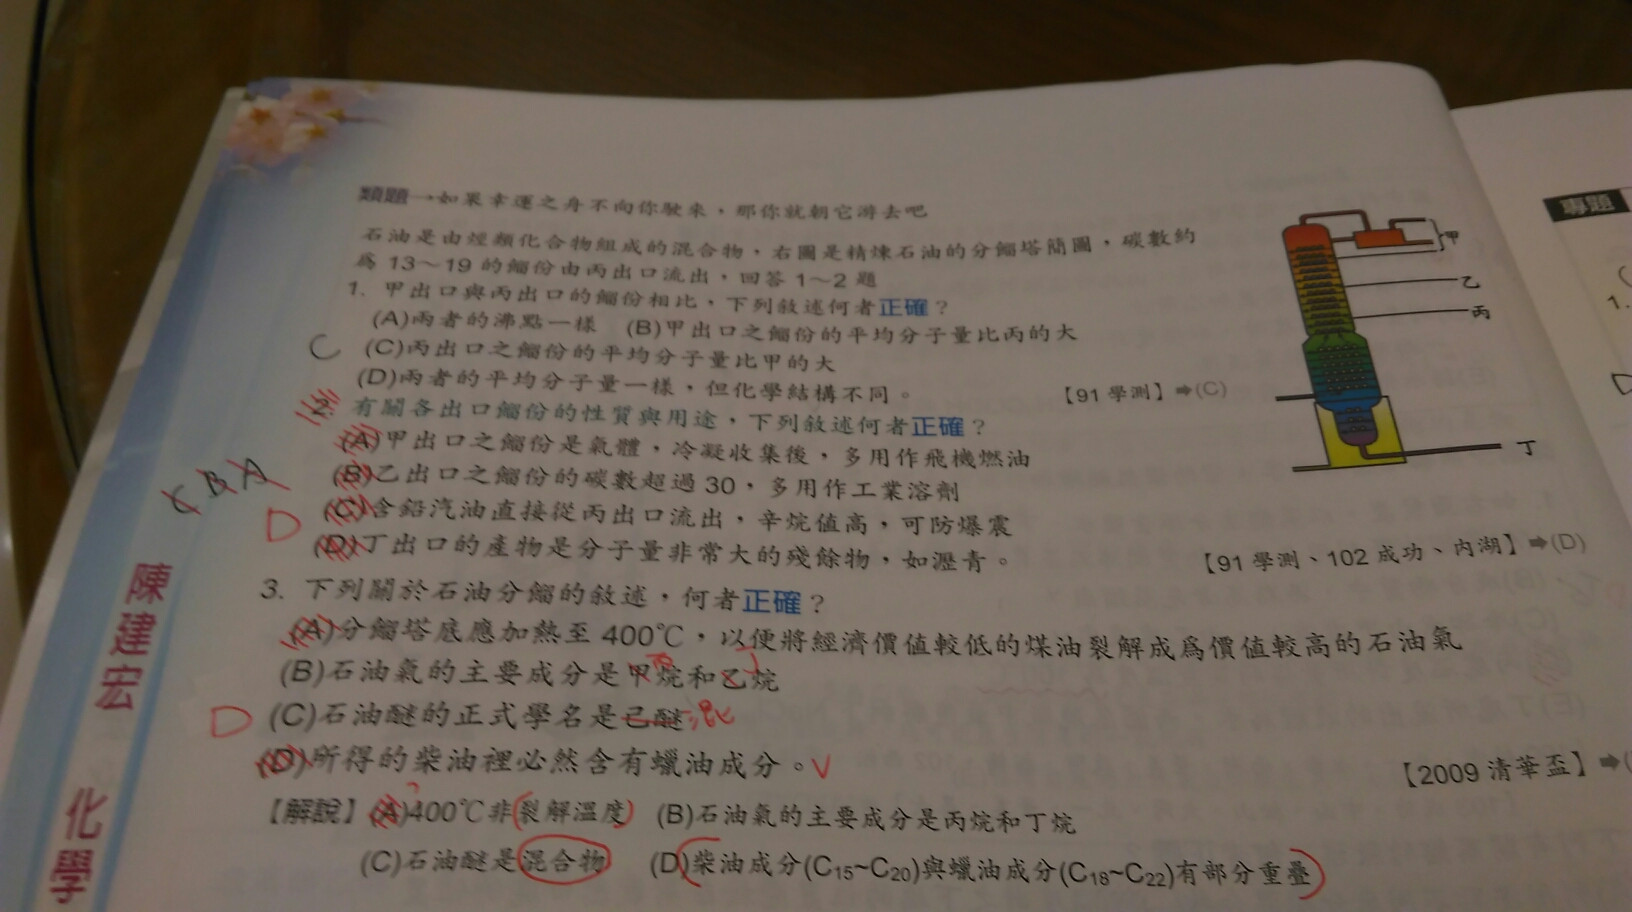 類題→如果幸運之舟不向你駛來，那你就朝它游去吧
石油是由烴類化合物組成的混合物，右圖是精煉石油的分餾塔簡圖，碳數約
為13～19的餾份由丙出口流出，回答1～2題
1. 甲出口與丙出口的餾份相比，下列敘述何者正確？
(A)兩者的沸點一樣 (B)甲出口之餾份的平均分子量比丙的大
C (C)丙出口之餾份的平均分子量比甲的大
(D)兩者的平均分子量一樣，但化學結構不同。 【91學測】⇒(C)
2. 有關各出口餾份的性質與用途，下列敘述何者正確？
(A)甲出口之餾份是氣體，冷凝收集後，多用作飛機燃油
(B)乙出口之餾份的碳數超過30，多用作工業溶劑
C B A
D (C)含鉛汽油直接從丙出口流出，辛烷值高，可防爆震
(D)丁出口的產物是分子量非常大的殘餘物，如瀝青。 【91學測、102成功、內湖】⇒(D)
3. 下列關於石油分餾的敘述，何者正確？
(A)分餾塔底應加熱至400℃，以便將經濟價值較低的煤油裂解成為價值較高的石油氣
(B)石油氣的主要成分是甲烷和乙烷
丙 丁
D (C)石油醚的正式學名是己醚
(D)所得的柴油裡必然含有蠟油成分。V
【2009清華盃】⇒(
【解說】(A)400℃非裂解溫度 (B)石油氣的主要成分是丙烷和丁烷
(C)石油醚是混合物 (D)柴油成分(C15~C20)與蠟油成分(C18~C22)有部分重疊
甲
乙
丙
丁
陳建宏
化學
專題
1.
D